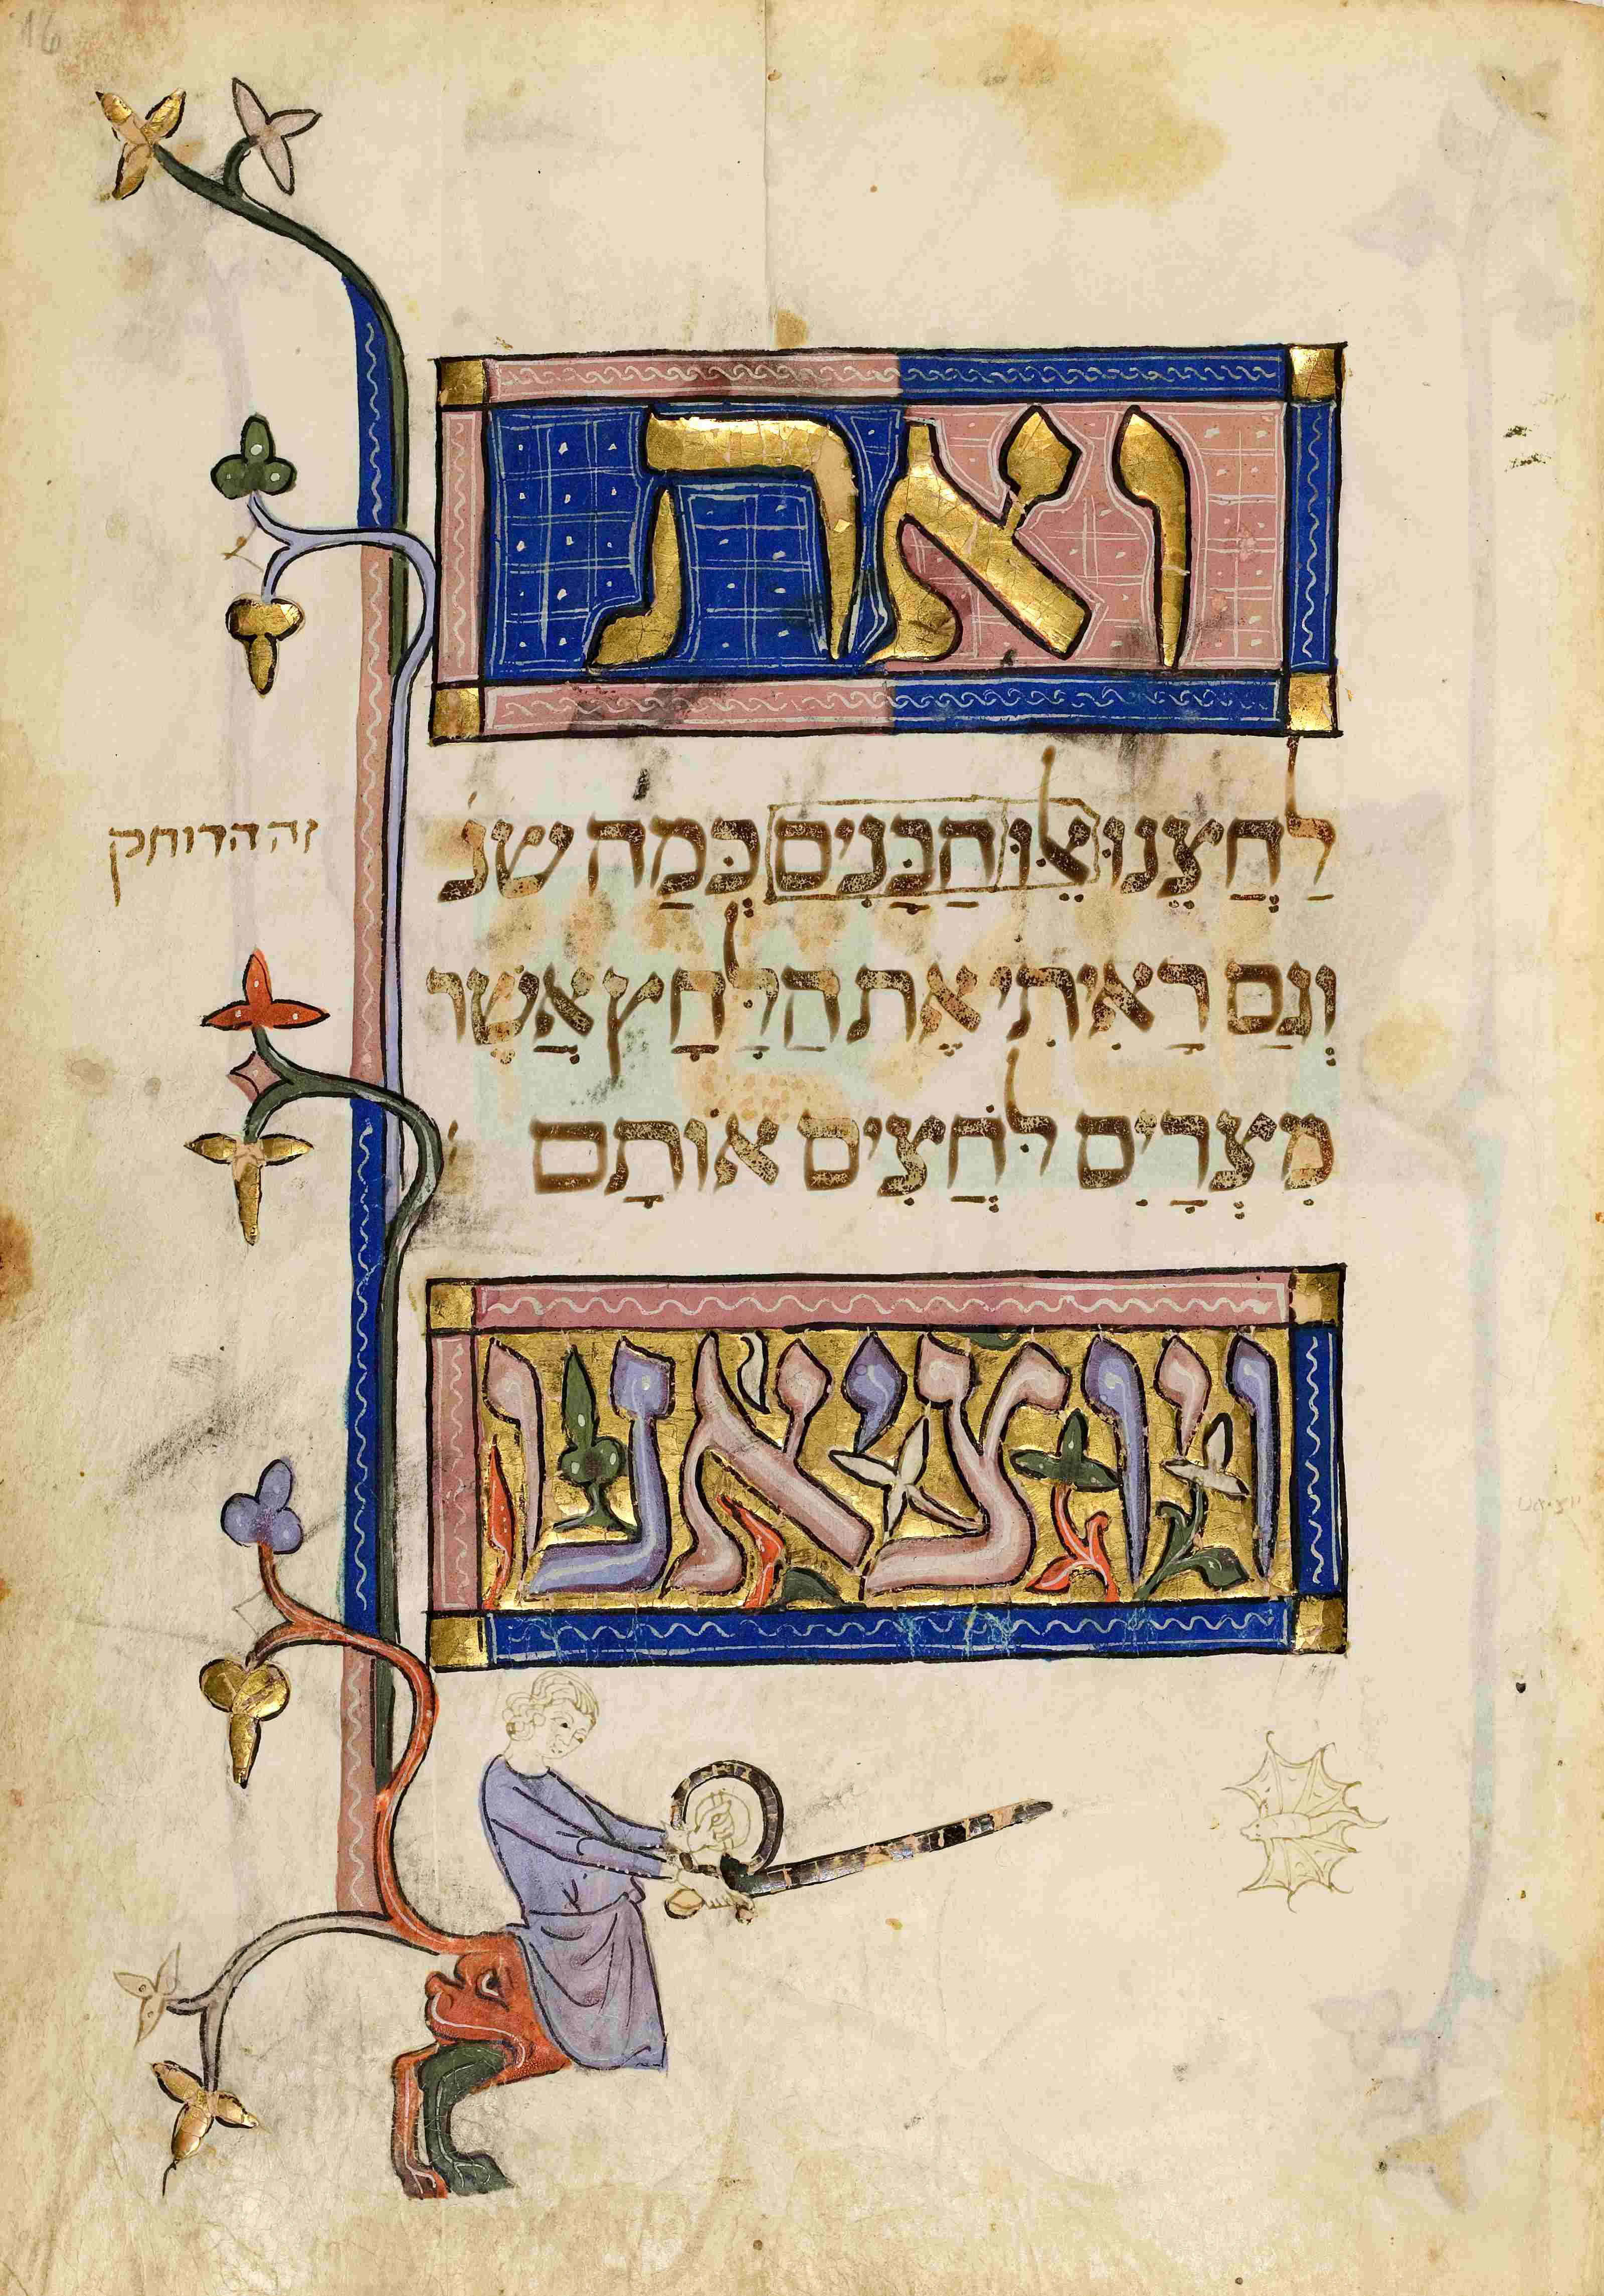 16
ואת
לַחֲצֵנוּ אֵלּוּ הַבָּנִים כְּמַה שנ'
זה הדוחק
וְגַם רָאִיתִי אֶת הַלַּחָץ אֲשֶׁר
מִצְרָיִם לֹּחֲצִים אוֹתָם :
ויוציאנו